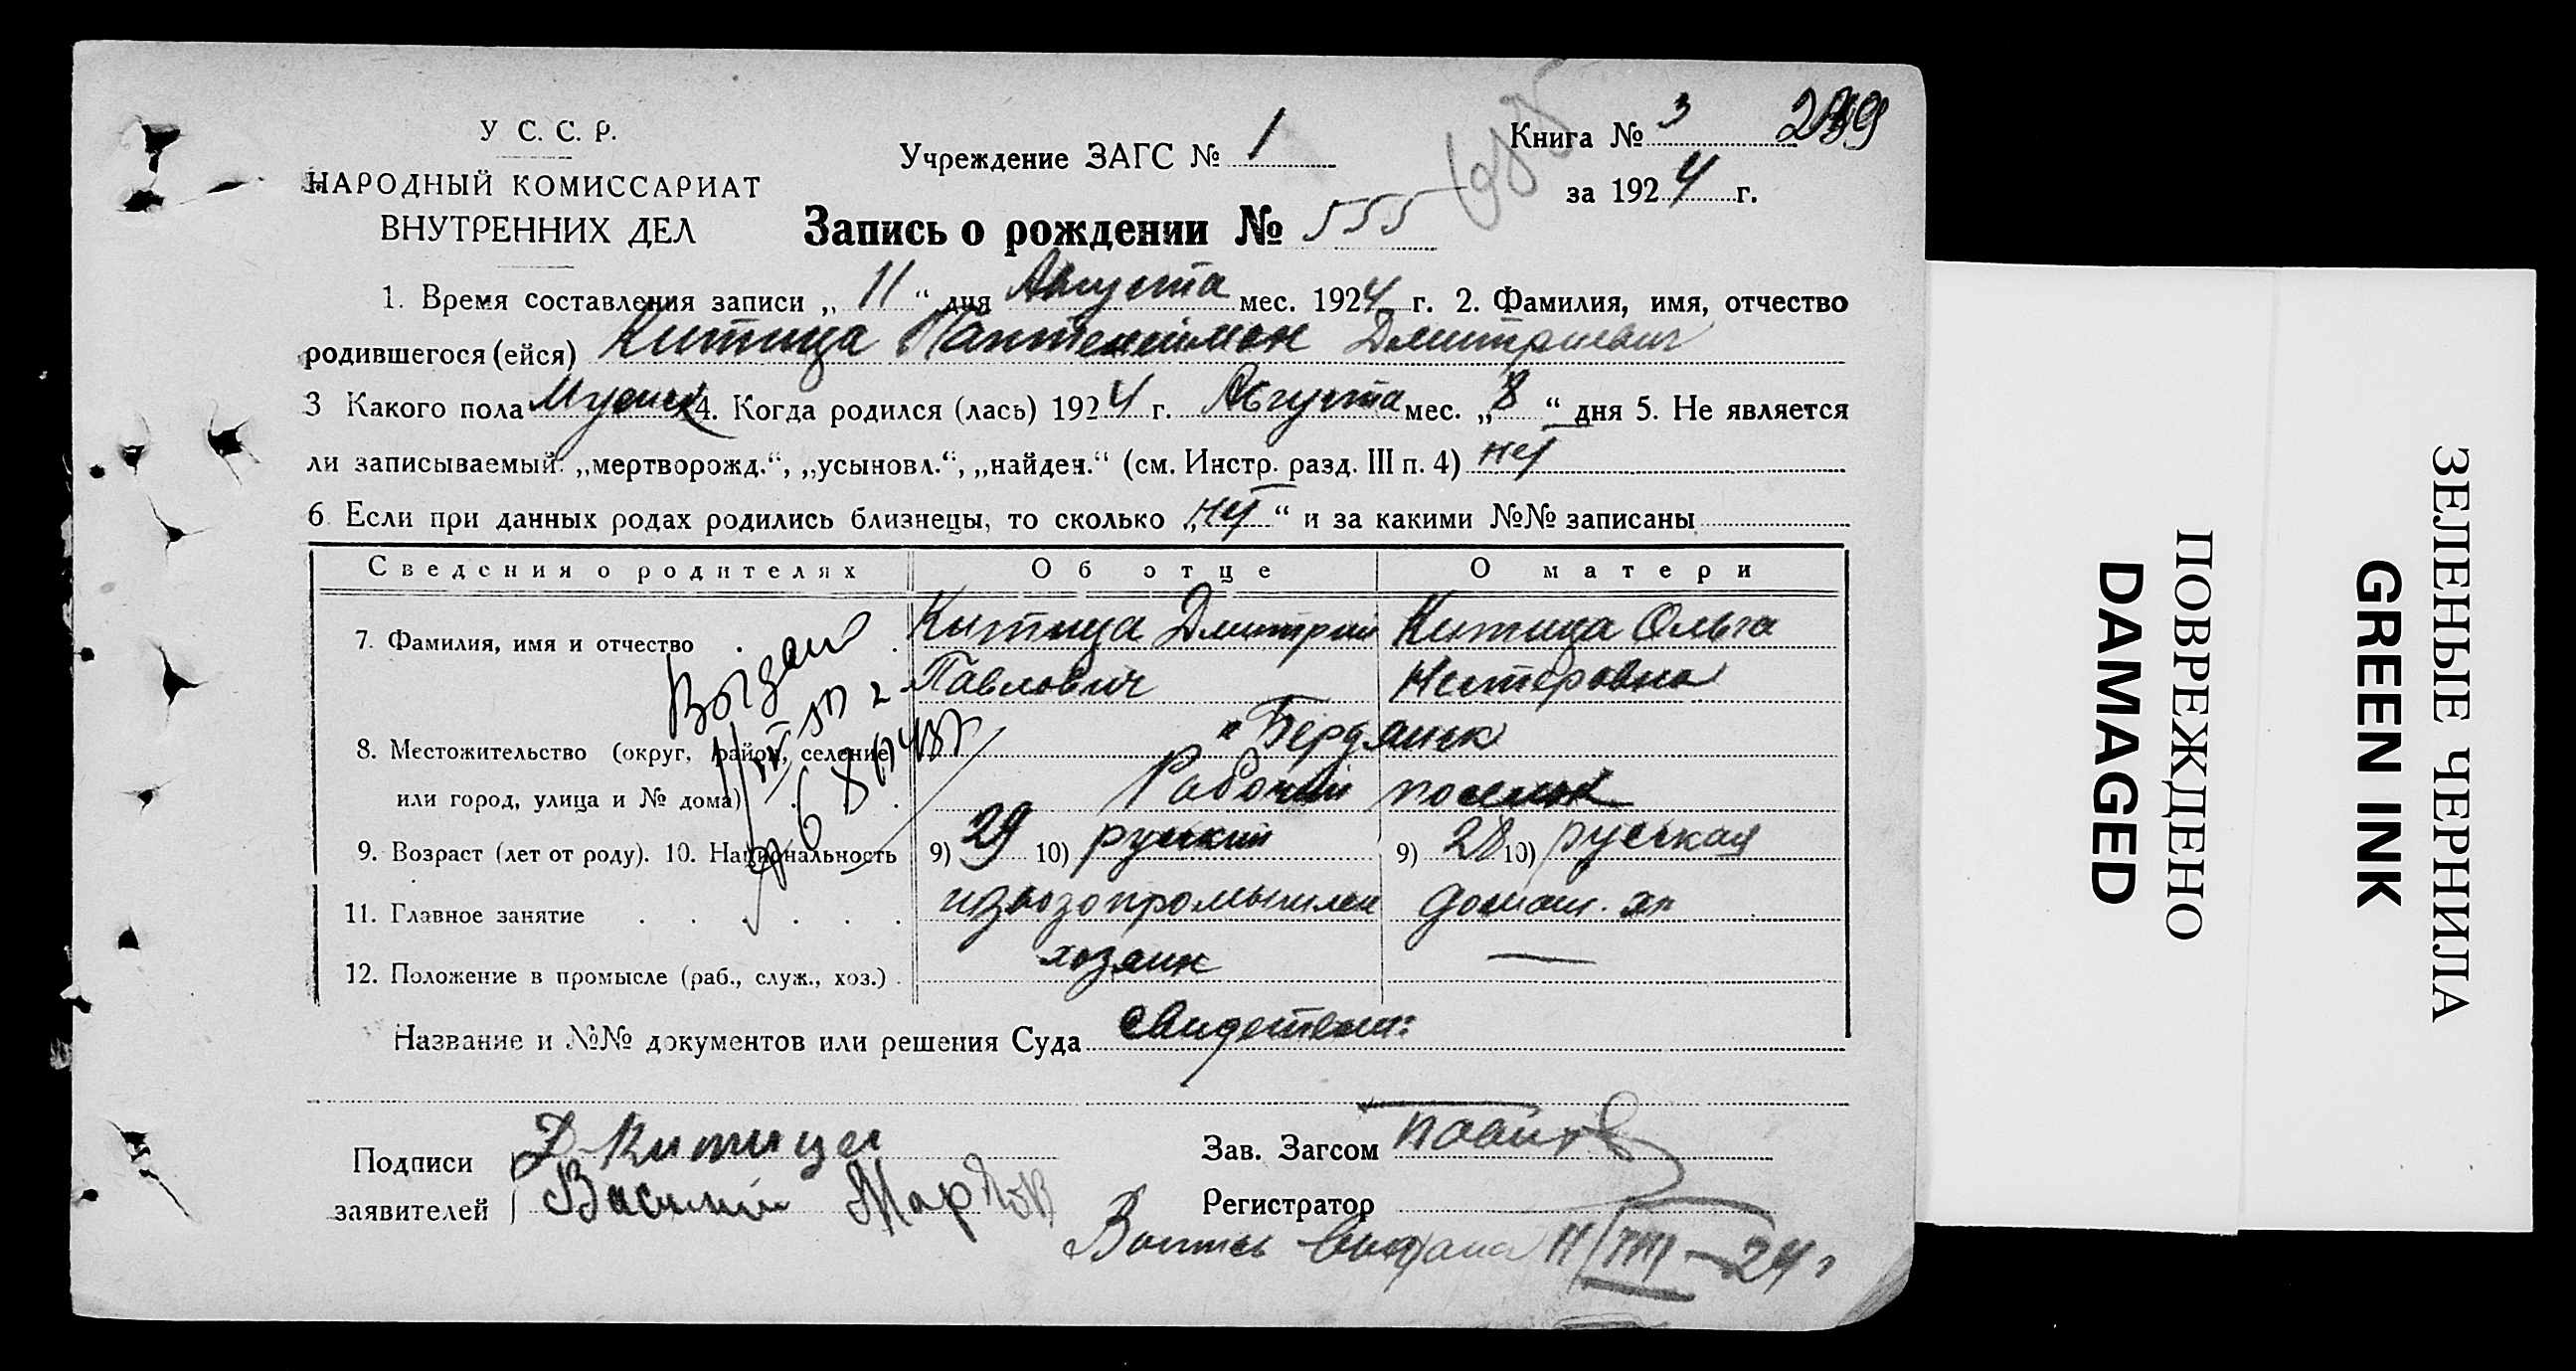 У С. С. Р.
НАРОДНЫЙ КОМИССАРИАТ
ВНУТРЕННИХ ДЕЛ
Учреждение ЗАГС № 1
Книга № 3
за 1924 г.
Запись о рождении № 555
1. Время составления записи „ 11 “ дня Августа мес. 1924 г. 2. Фамилия, имя, отчество
родившегося (ейся) Китица Пантелеймон Дмитриевич
3 Какого пола Мужск 4. Когда родился (лась) 1924 г. Августа мес. „ 8 “ дня 5. Не является
ли записываемый: „мертворожд.“, „усыновл.“, „найден.“ (см. Инстр. разд. III п. 4) нет
6 Если при данных родах родились близнецы, то сколько „ нет “ и за какими №№ записаны
Сведения о родителях Об отце О матери
7. Фамилия, имя и отчество Китица Дмитрий Китица Ольга
Павлович Нестеровна
8. Местожительство (округ, район, селение) Бердянск
или город, улица и № дома) Рабочий поселок
9. Возраст (лет от роду). 10. Национальность 9) 29 10) русский 9) 28 10) русская
11. Главное занятие извозопромышлен домаш. хоз
12. Положение в промысле (раб., служ., хоз.) хозяин —
Название и №№ документов или решения Суда свидетели:
Подписи Д Китица Зав. Загсом
заявителей Василий Марков Регистратор
Выпись выдана 11/VIII—24 г
ПОВРЕЖДЕНО
DAMAGED
ЗЕЛЕНЫЕ ЧЕРНИЛА
GREEN INK